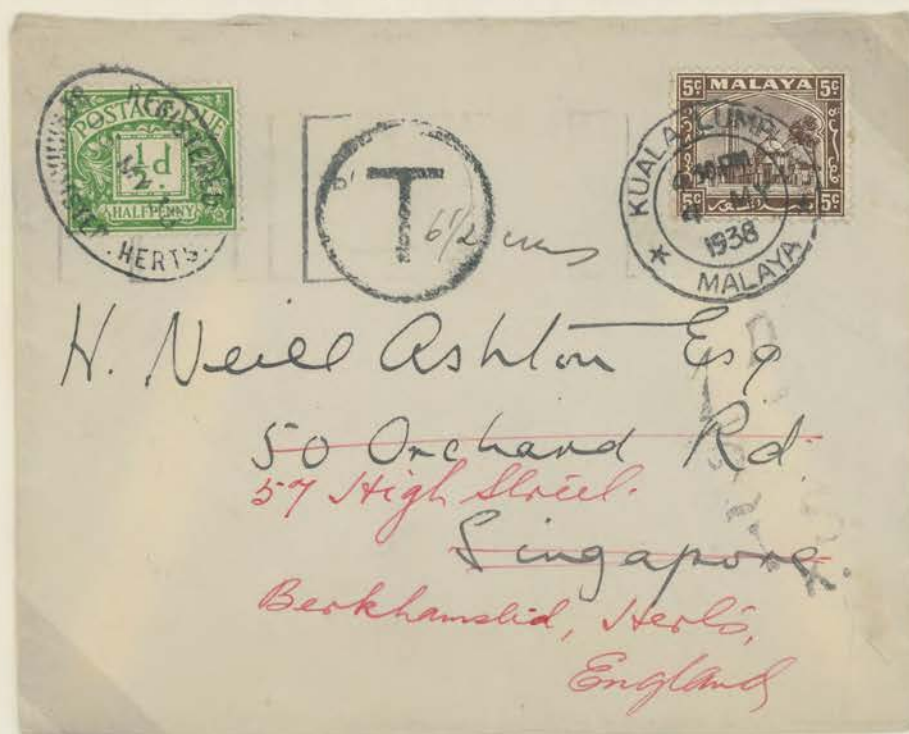 POSTAGE DUE
½d
HALFPENNY
REGISTERED
HERTS.
T
6½
5c MALAYA 5c
5c 5c
KUALA LUMPUR
1938
MALAYA
H. Neill Ashton Esq
50 Orchard Rd
57 High Street.
Singapore.
Berkhamsted, Herts,
England